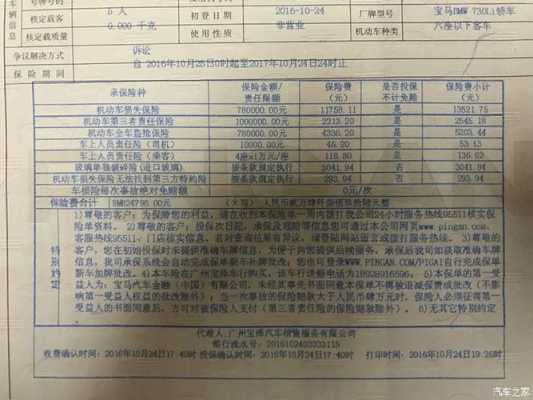 号牌号码
核定载客 5 人 初登日期 2016-10-24 厂牌型号 宝马BMW 730Li轿车
核定载质量 0.000 千克 使用性质 非营业 机动车种类 六座以下客车
争议解决方式 诉讼
保险期间 自 2016年10月25日0时起至2017年10月24日24时止
承保险种 保险金额/责任限额 保险费(元) 是否投保不计免赔 保险费小计(元)
机动车损失保险 780000.00元 11758.11 是 13521.75
机动车第三者责任保险 1000000.00元 2213.20 是 2545.18
机动车全车盗抢保险 780000.00元 4336.20 是 5203.44
车上人员责任险(司机) 10000.00元 46.20 是 53.13
车上人员责任险(乘客) 4座×1万元/座 118.80 是 136.62
玻璃单独破碎险(进口玻璃) 按条款规定执行 3041.94 否 3041.94
机动车损失保险无法找到第三方特约险 按条款规定执行 293.94 否 293.94
车损险每次事故绝对免赔额 0元/次
保险费合计 RMB24796.00元 (大写) 人民币贰万肆仟柒佰玖拾陆元整
特别约定
1)尊敬的客户:为保障您的利益,请在收到本保险单一周内拨打我公司24小时服务热线95511核实保
险单资料。 2)尊敬的客户:投保次日起,承保及理赔等信息您可通过本公司网页www.pingan.com、
客服热线95511、门店核实信息,若对查询结果有异议,请登陆网站留言或拨打服务热线。 3)尊敬的客
新车加牌批改。4)本车险在广州宝泽车行购买,该车行送修电话为
益人为:宝马汽车金融(中国)有限公司。未经其事先书面同意本保单不得被退减保费或批改(不影
响第一受益人权益的批改除外);当一次事故的保险赔款大于人民币肆万元时,保险人必须征得第一
受益人的书面同意后,方可对被保险人支付(第三者责任的保险赔款除外)。 6)无其它特别约定。
代理人:广州宝泽汽车销售服务有限公司
收费确认时间:2016年10月24日17:40时 投保确认时间:2016年10月24日17:40时 打印时间:2016年10月24日19:26时
汽车之家